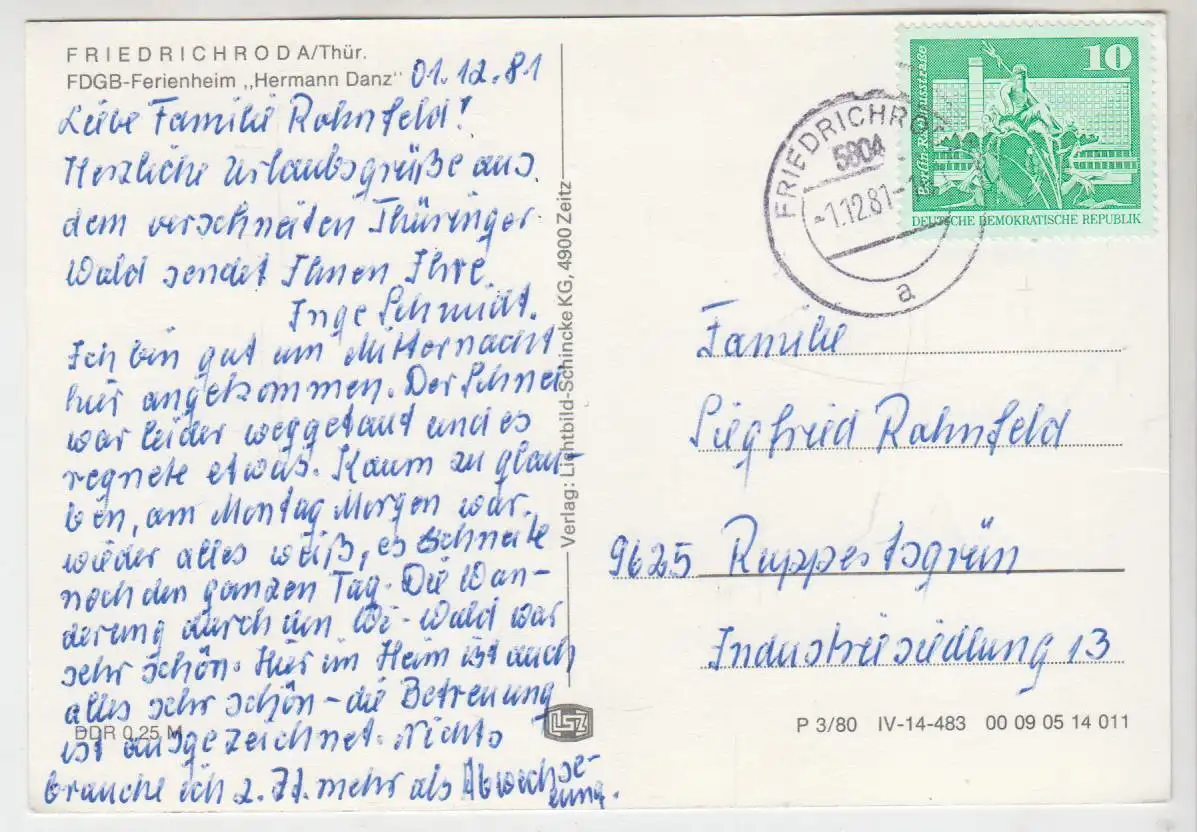 FRIEDRICHRODA/Thür.
FDGB-Ferienheim „Hermann Danz"
01.12.81
Liebe Familie Rahnfeld!
Herzliche Urlaubsgrüße aus
dem verschneiten Thüringer
Wald sendet Ihnen Ihre
Inge Schmidt.
Ich bin gut um Mitternacht
hier angekommen. Der Schnee
war leider weggetaut und es
regnete etwas. Kaum zu glau-
ben, am Montag Morgen war
wieder alles weiß, es schneite
noch den ganzen Tag. Die Wan-
derung durch den Wi-Wald war
sehr schön. Hier im Heim ist auch
alles sehr schön – die Betreuung
ist ausgezeichnet. Nichts
brauche ich z. Zt. mehr als Abwechse-
lung.
DDR 0,25 M
Verlag: Lichtbild-Schincke KG, 4900 Zeitz
LSZ
FRIEDRICHRODA
5804
-1.12.81-
a
10
Berlin Rathausstraße
DEUTSCHE DEMOKRATISCHE REPUBLIK
Familie
Siegfried Rahnfeld
9625 Ruppertsgrün
Industriesiedlung 13
P 3/80 IV-14-483 00 09 05 14 011